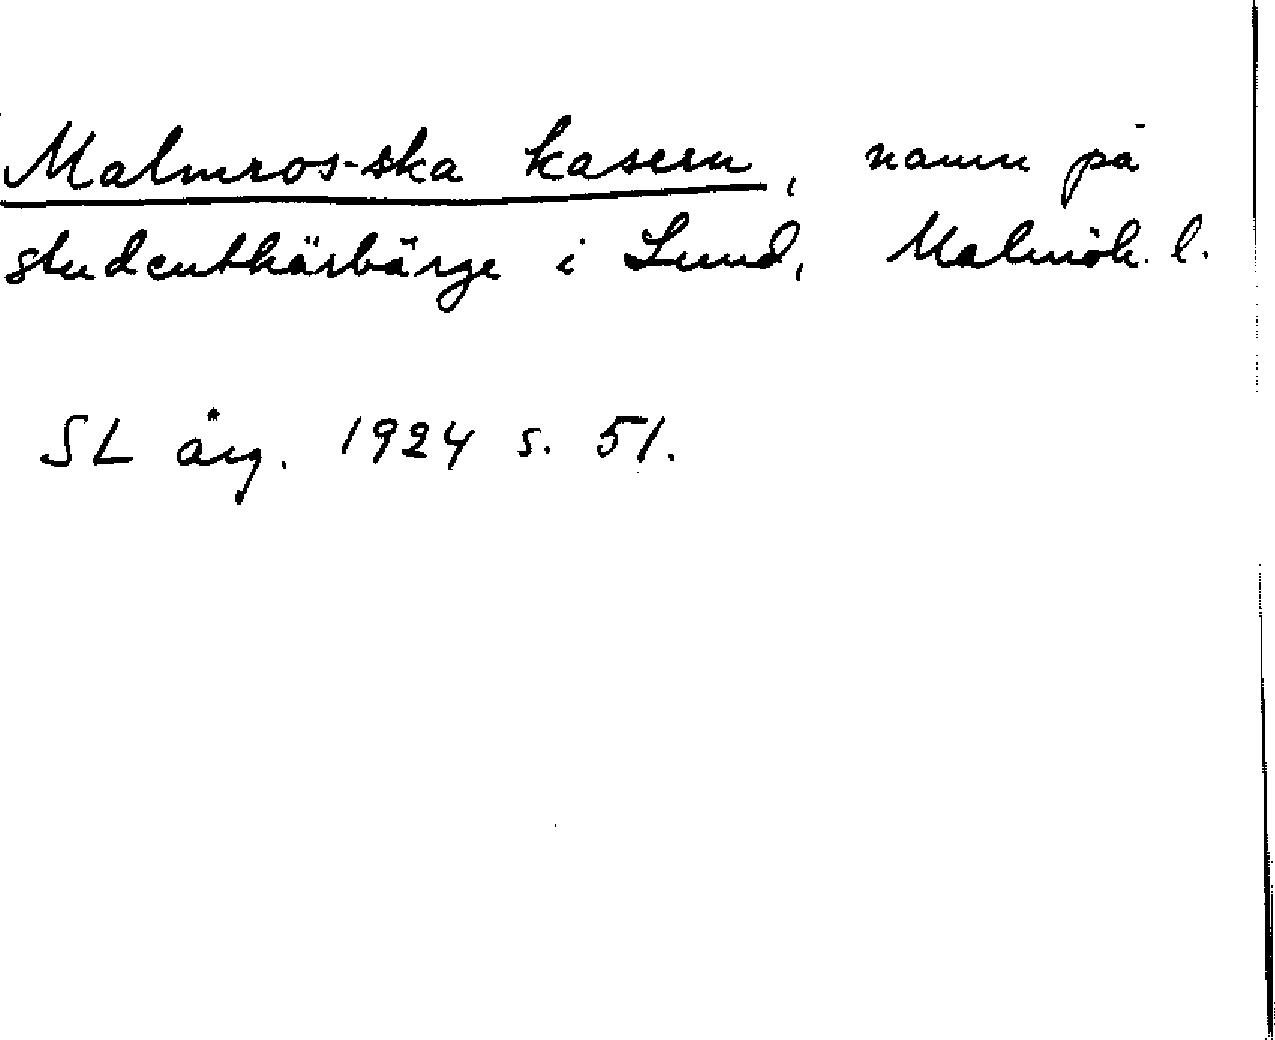 Malmros-ska kasern, namn på
studenthärbärge i Lund, Malmöh. l.
SL årg. 1924 s. 51.